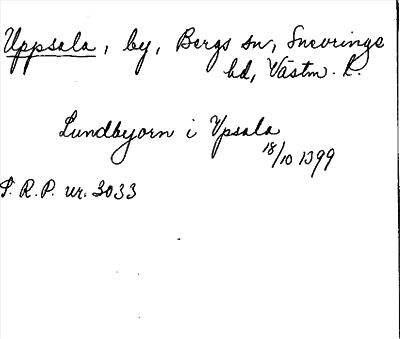 Uppsala, by, Bergs sn, Snevringe
hd, Västm. l.
Lundbyorn i Vpsala
18/10 1399
S. R. P. nr. 3033